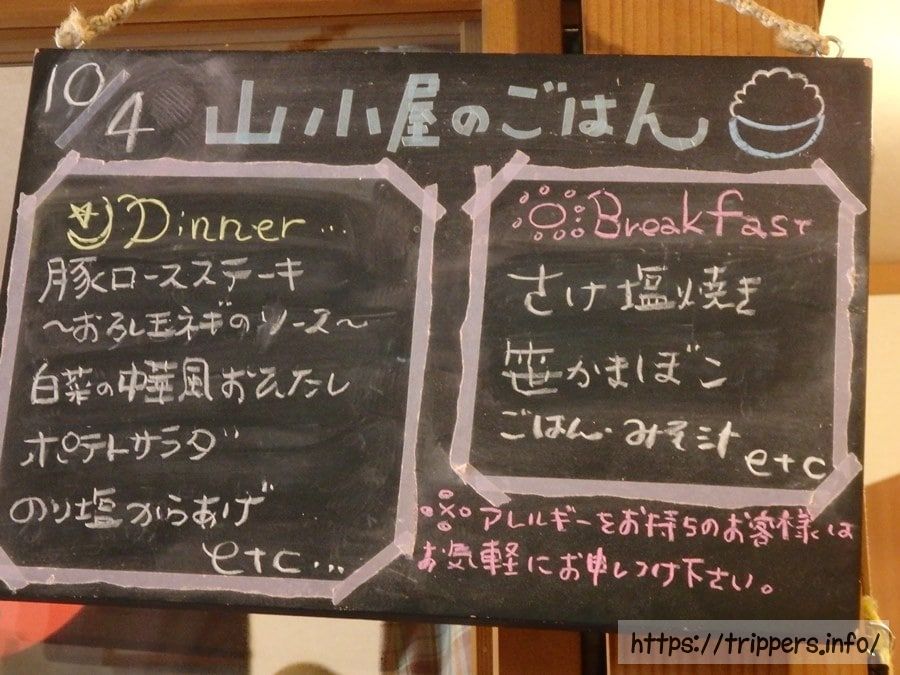 10/4 山小屋のごはん
Dinner...
豚ロースステーキ
〜おろし玉ネギのソース〜
白菜の中華風おひたし
ポテトサラダ
のり塩からあげ
etc...
Breakfast
さけ塩焼き
笹かまぼこ
ごはん・みそ汁
etc
※アレルギーをお持ちのお客様は
お気軽にお申しつけ下さい。
https://trippers.info/